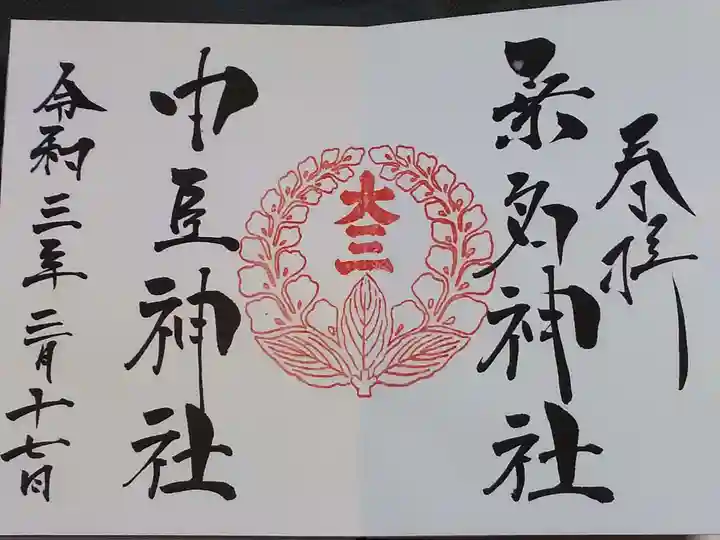 奉拝
桑名神社
大三
中臣神社
令和三年二月十七日